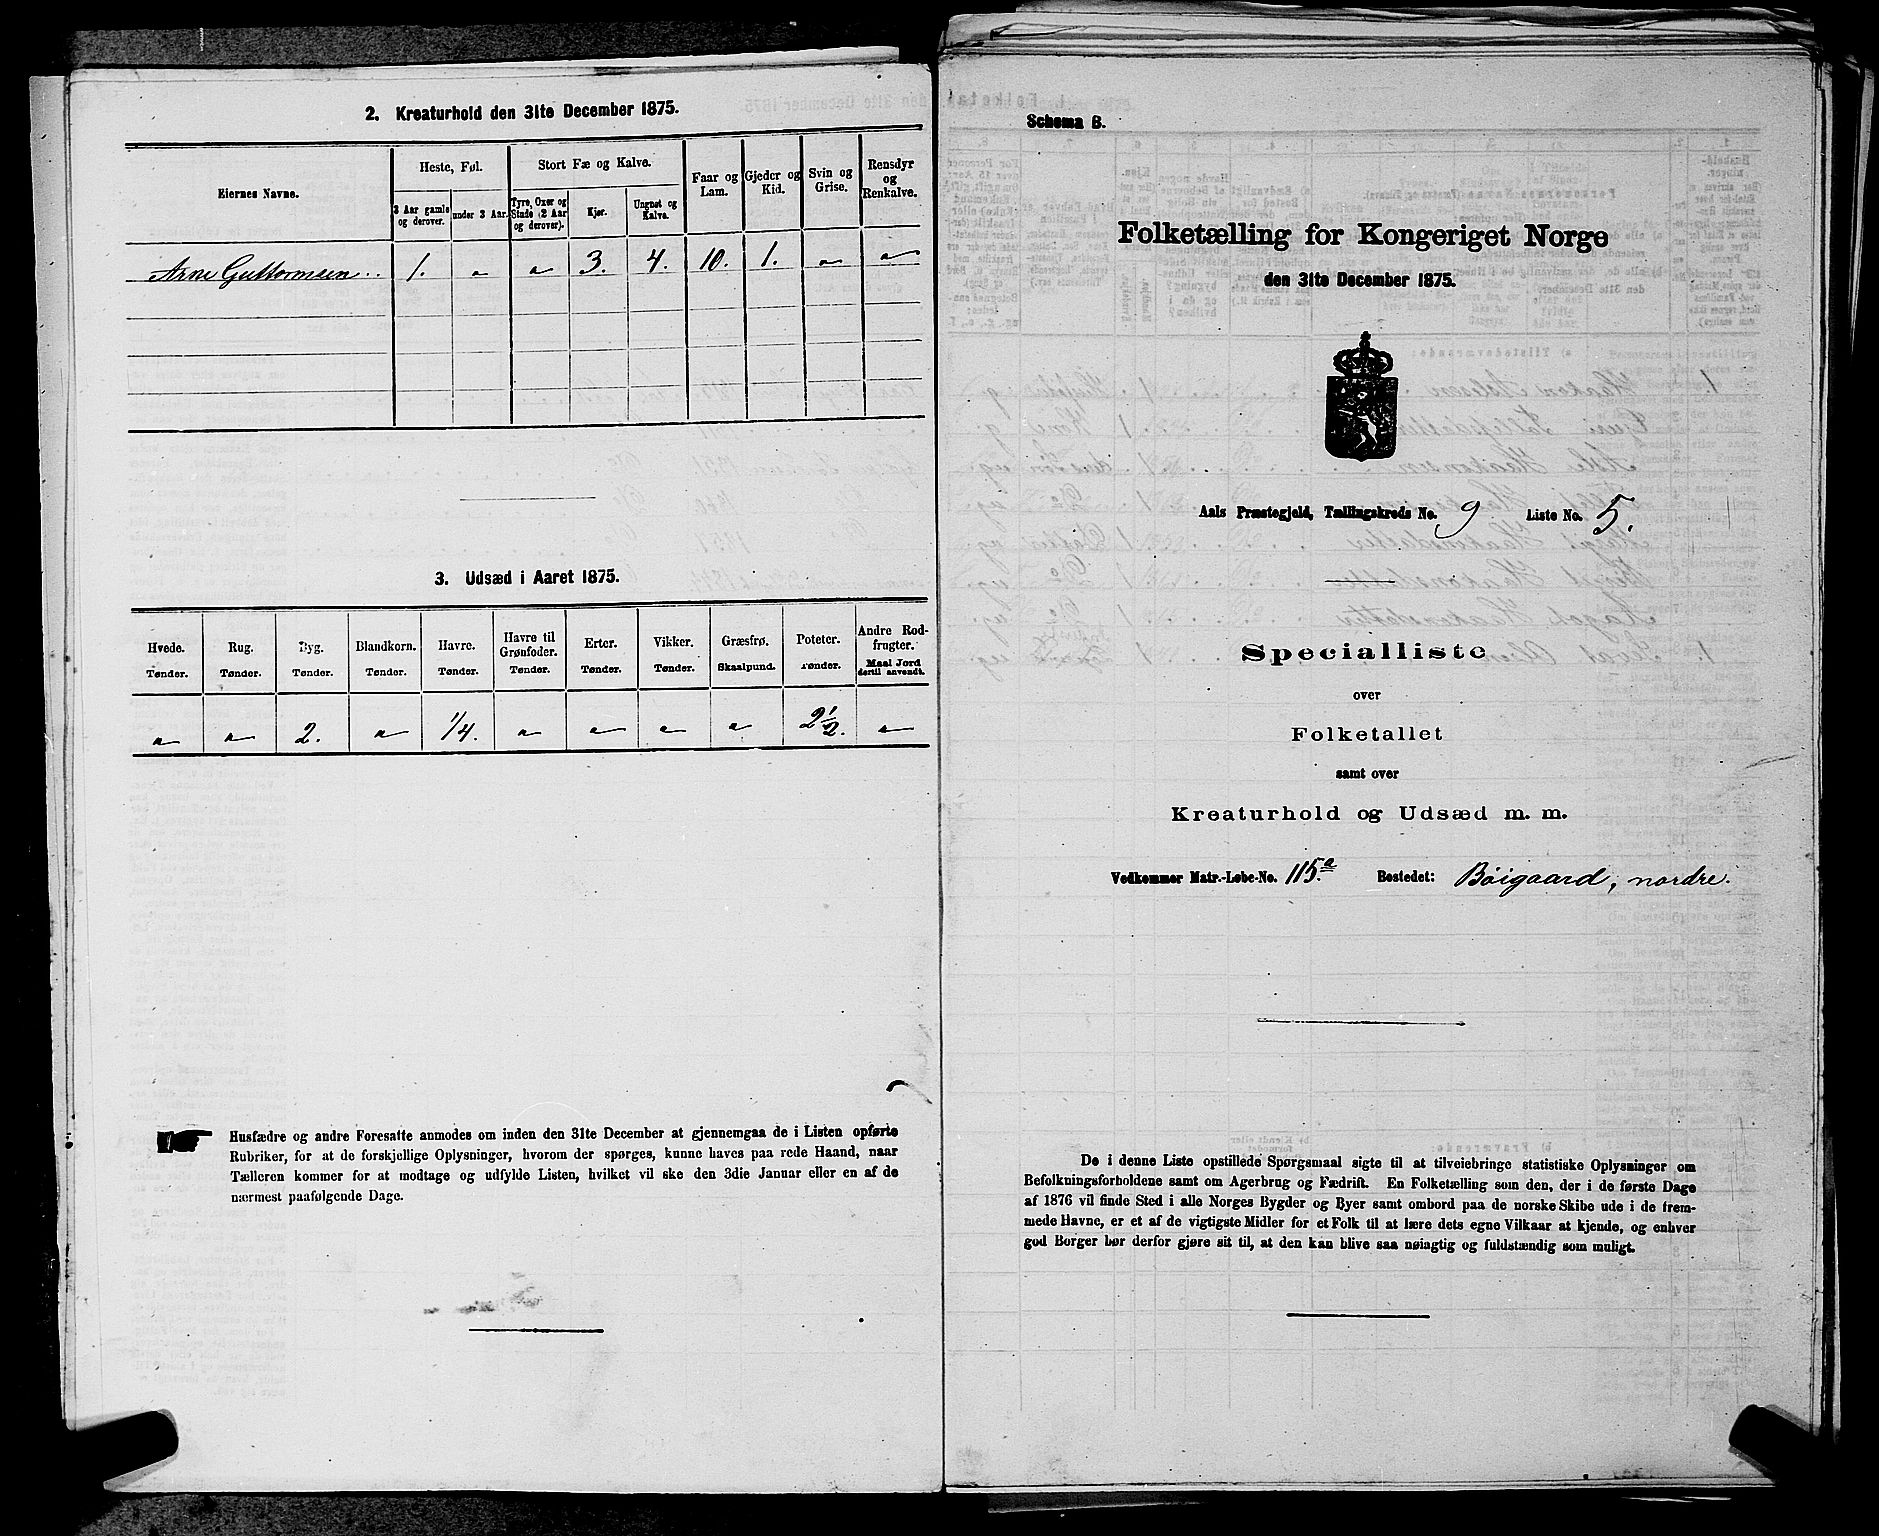 2. Kreaturhold den 31te December 1875.
Eiernes Navne.
Heste, Føl.
Stort Fæ og Kalve.
Faar og Lam.
Gjeder og Kid.
Svin og Grise.
Rensdyr og Renkalve.
3 Aar gamle og derover.
under 3 Aar.
Tyre, Oxer og Stude (2 Aar og derover).
Kjør.
Ungnøt og Kalve.
Arne Guttormsen 1. " " 3. 4. 10. 1. " "
3. Udsæd i Aaret 1875.
Hvede. Rug. Byg. Blandkorn. Havre. Havre til Grønfoder. Erter. Vikker. Græsfrø. Poteter. Andre Rodfrugter.
Tønder. Tønder. Tønder. Tønder. Tønder. Tønder. Tønder. Tønder. Skaalpund. Tønder. Maal Jord dertil anvendt.
" " 2. " 1/4. " " " " 2 1/2. "
Husfædre og andre Foresatte anmodes om inden den 31te December at gjennemgaa de i Listen opførte
Rubriker, for at de forskjellige Oplysninger, hvorom der spørges, kunne haves paa rede Haand, naar
Tælleren kommer for at modtage og udfylde Listen, hvilket vil ske den 3die Januar eller en af de
nærmest paafølgende Dage.
Schema B.
Folketælling for Kongeriget Norge
den 31te December 1875.
Aals Præstegjeld, Tællingskreds No. 9 Liste No. 5.
Specialliste
over
Folketallet
samt over
Kreaturhold og Udsæd m. m.
Vedkommer Matr.-Løbe-No. 115.a Bostedet: Böigaard, nordre.
De i denne Liste opstillede Spørgsmaal sigte til at tilveiebringe statistiske Oplysninger om
Befolkningsforholdene samt om Agerbrug og Fædrift. En Folketælling som den, der i de første Dage
af 1876 vil finde Sted i alle Norges Bygder og Byer samt ombord paa de norske Skibe ude i de frem-
mede Havne, er et af de vigtigste Midler for et Folk til at lære dets egne Vilkaar at kjende, og enhver
god Borger bør derfor gjøre sit til, at den kan blive saa nøiagtig og fuldstændig som muligt.